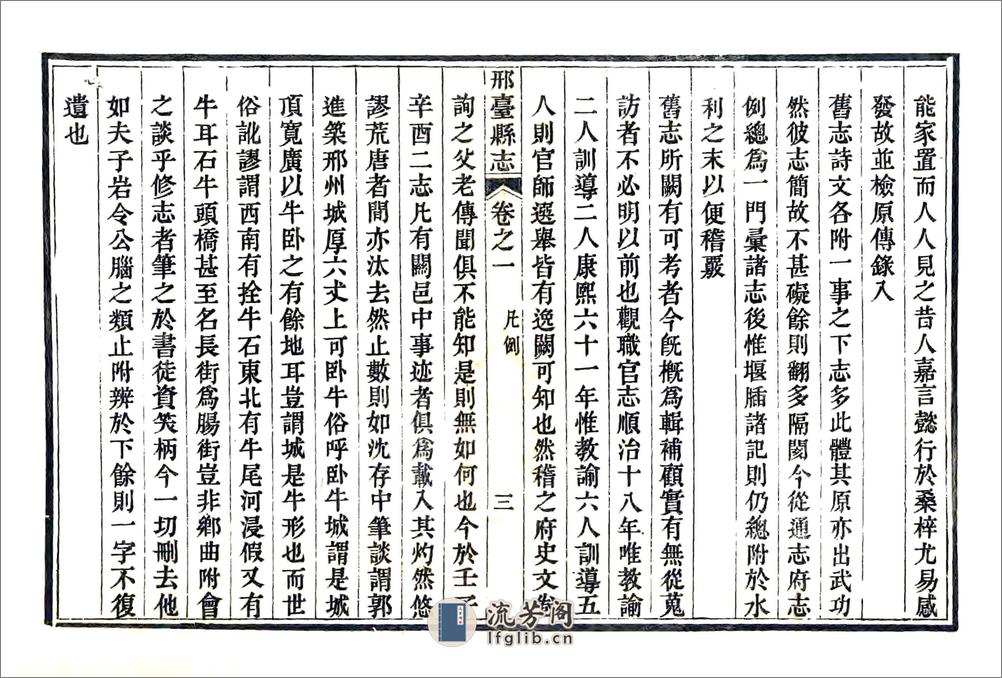 能家置而人人見之昔人嘉言懿行於桑梓尤易感
發故並檢原傳錄入
舊志詩文各附一事之下志多此體其原亦出武功
然彼志簡故不甚礙餘則翻多隔閡今從通志府志
例總爲一門彙諸志後惟堰牐諸記則仍總附於水
利之末以便稽覈
舊志所闕有可考者今旣槪爲輯補顧實有無從蒐
訪者不必明以前也觀職官志順治十八年唯教諭
二人訓導二人康熙六十一年惟教諭六人訓導五
人則官師選舉皆有逸闕可知也然稽之府史文卷
邢臺縣志
卷之一
凡例
三
詢之父老傳聞俱不能知是則無如何也今於壬子
辛酉二志凡有關邑中事迹者俱爲載入其灼然悠
謬荒唐者間亦汰去然止數則如沈存中筆談謂郭
進築邢州城厚六丈上可卧牛俗呼卧牛城謂是城
頂寛廣以牛卧之有餘地耳豈謂城是牛形也而世
俗訛謬謂西南有拴牛石東北有牛尾河浸假又有
牛耳石牛頭橋甚至名長街爲腸街豈非鄕曲附會
之談乎修志者筆之於書徒資笑柄今一切刪去他
如夫子岩令公腦之類止附辨於下餘則一字不復
遺也
流芳閣
lfglib.cn